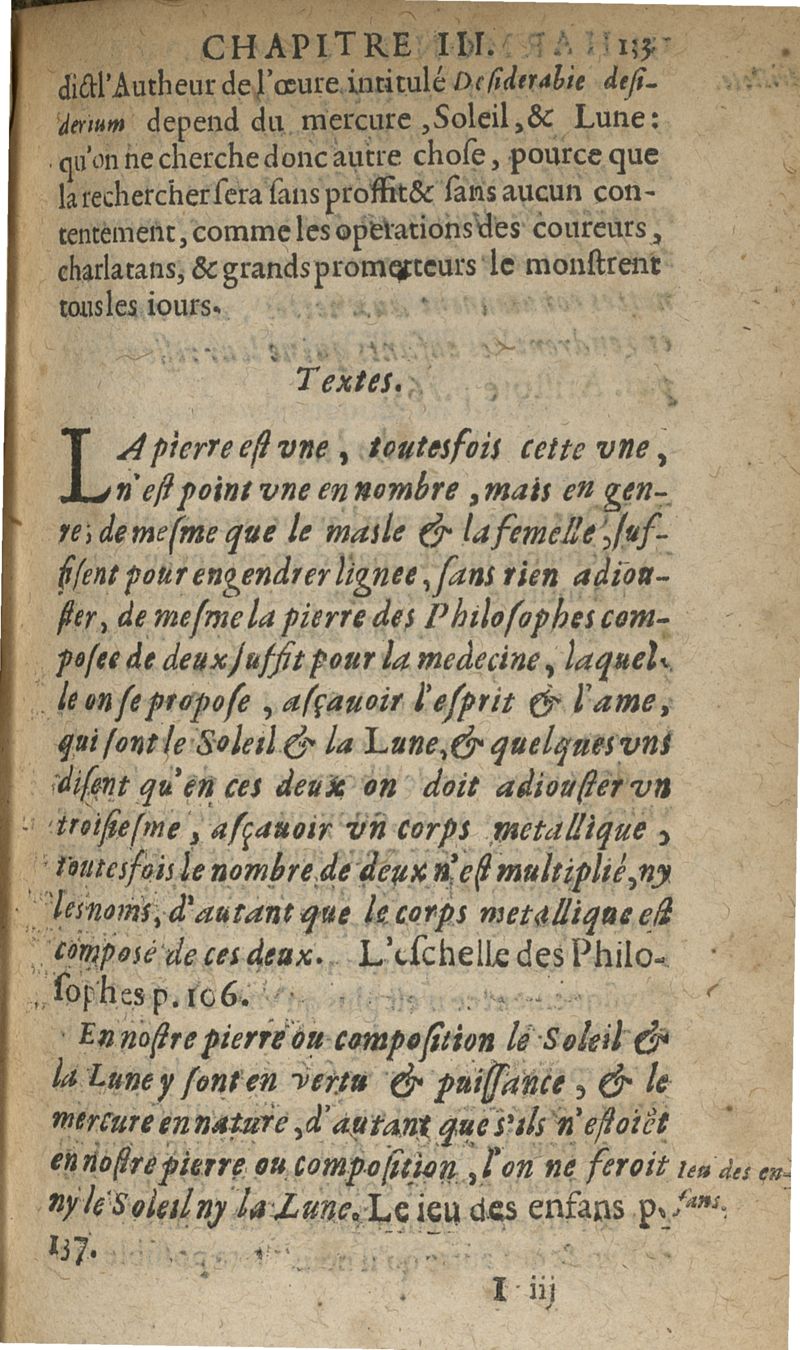 CHAPITRE III. 133
dict l'Autheur de l'œure intitulé Desiderabie desi-
derium depend du mercure, Soleil, & Lune:
qu'on ne cherche donc autre chose, pource que
la rechercher sera sans proffit & sans aucun con-
tentement, comme les operations des coureurs,
charlatans, & grands prometteurs le monstrent
tous les iours.
Textes.
LA pierre est vne, toutesfois cette vne,
n'est point vne en nombre, mais en gen-
re; de mesme que le masle & la femelle, suf-
fisent pour engendrer lignee, sans rien adiou-
ster, de mesme la pierre des Philosophes com-
posee de deux suffit pour la medecine, laquel-
le on se propose, asçauoir l'esprit & l'ame,
qui sont le Soleil & la Lune, & quelques vns
disent qu'en ces deux on doit adiouster vn
troisiesme, asçauoir vn corps metallique,
toutesfois le nombre de deux n'est multiplié, ny
les noms, d'autant que le corps metallique est
composé de ces deux. L'eschelle des Philo-
sophes p. 106.
En nostre pierre ou composition le Soleil &
la Lune y sont en vertu & puissance, & le
mercure en nature, d'autant que s'ils n'estoiẽt
en nostre pierre ou composition, l'on ne feroit
ny le Soleil ny la Lune. Le ieu des enfans p.
137.
Ieu des en-
fans.
I iij